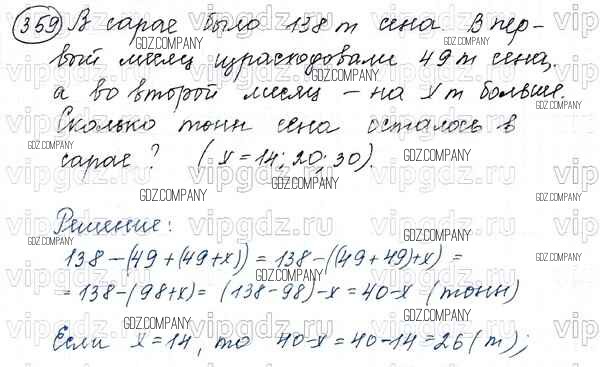 359 В сарае было 138 т сена. В пер-
вый месяц израсходовали 49 т сена,
а во второй месяц – на x т больше.
Сколько тонн сена осталось в
сарае? (x=14; 20; 30).
Решение:
138-(49+(49+x))=138-((49+49)+x)=
=138-(98+x)=(138-98)-x=40-x (тонн)
Если x=14, то 40-x=40-14=26(т);